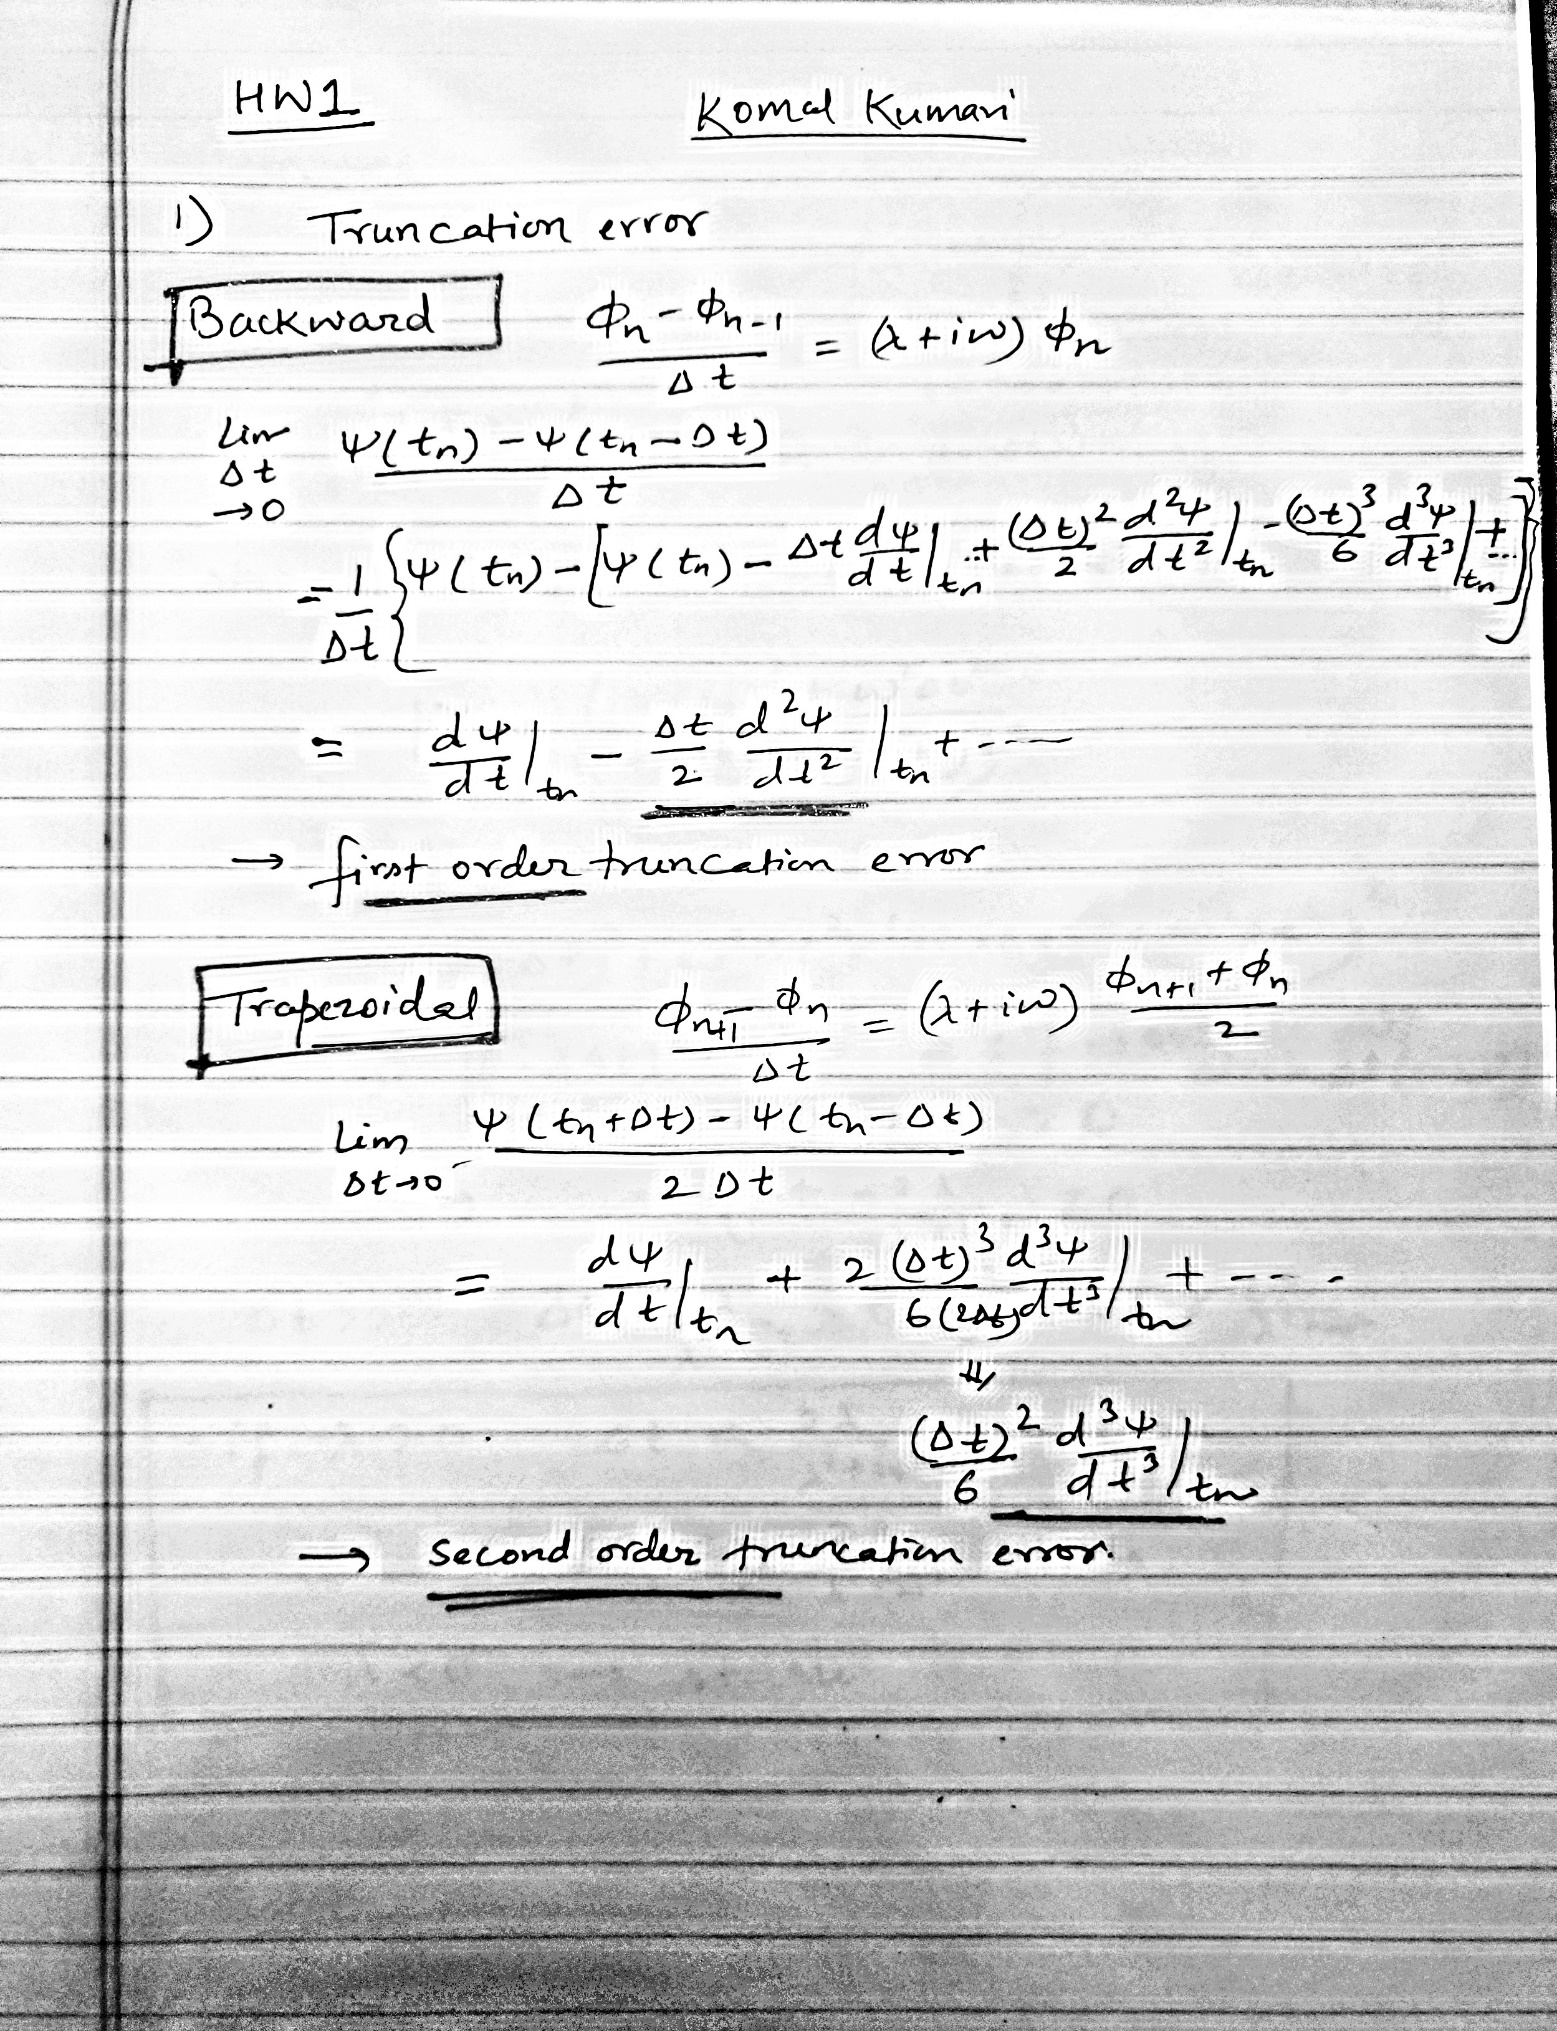 HW1 Komal Kumari
1) Truncation error
Backward (ϕn - ϕn-1)/Δt = (λ+iω) ϕn
Lim Δt →0 (ψ(tn) - ψ(tn - Δt))/Δt
= 1/Δt {ψ(tn) - [ψ(tn) - Δt dψ/dt|tn + (Δt)²/2 d²ψ/dt²|tn - (Δt)³/6 d³ψ/dt³|tn + ...]}
= dψ/dt|tn - Δt/2 d²ψ/dt²|tn + ----
→ first order truncation error
Trapezoidal (ϕn+1 - ϕn)/Δt = (λ+iω) (ϕn+1 + ϕn)/2
Lim Δt→0 (ψ(tn+Δt) - ψ(tn-Δt))/2Δt
= dψ/dt|tn + 2(Δt)³/6(2Δt) d³ψ/dt³|tn + ----
(Δt)²/6 d³ψ/dt³|tn
→ second order truncation error.